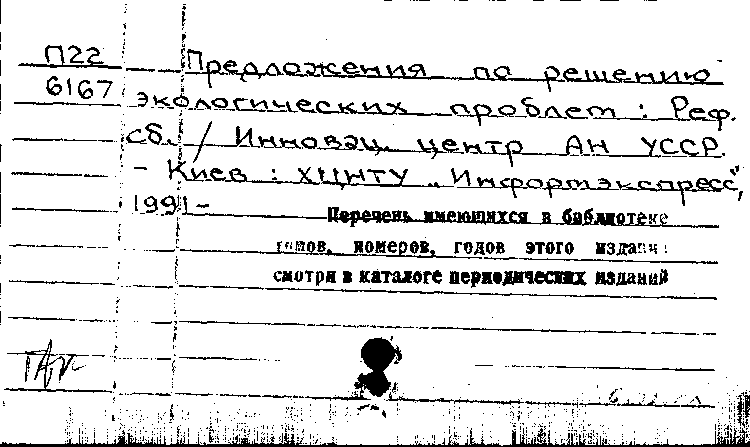 П22 Предложения по решению
6167 экологических проблем : Реф.
сб. / Инновац. центр АН УССР.
– Киев : ХЦНТУ „Информэкспресс",
1991–
Перечень имеющихся в библиотеке
томов, номеров, годов этого издания
смотри в каталоге периодических изданий